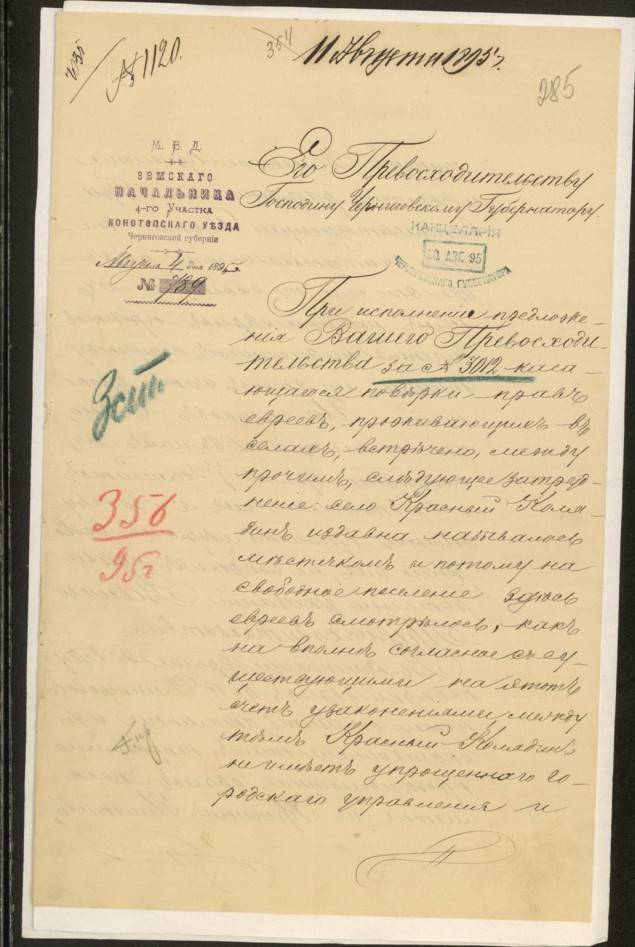 № 1120.
354
11 Августа 1895 г.
285
М. В. Д.
ЗЕМСКАГО
НАЧАЛЬНИКА
4-го Участка
КОНОТОПСКАГО УѢЗДА
Черниговской губерніи
Августа 4 дня 1895 г.
№ 789
Его Превосходительству
Господину Черниговскому Губернатору.
КАНЦЕЛЯРІЯ
10 АВГ. 95
ЧЕРНИГОВСКАГО ГУБЕРНАТОРА
При исполненіи предложе-
нія Вашего Превосходи-
тельства за № 3012 каса-
ющагося повѣрки правъ
евреевъ, проживающихъ въ
селахъ, встрѣчено, между
прочимъ, слѣдующее затруд-
неніе: село Красный Коля-
динъ издавна называлось
мѣстечкомъ и потому на
свободное поселеніе здѣсь
евреевъ смотрѣлось, какъ
на вполнѣ согласное съ су-
ществующими на этотъ
счетъ узаконеніями между
тѣмъ Красный Колядинъ
не имѣетъ упрощеннаго го-
родскаго управленія и
3 ст.
356
95 г